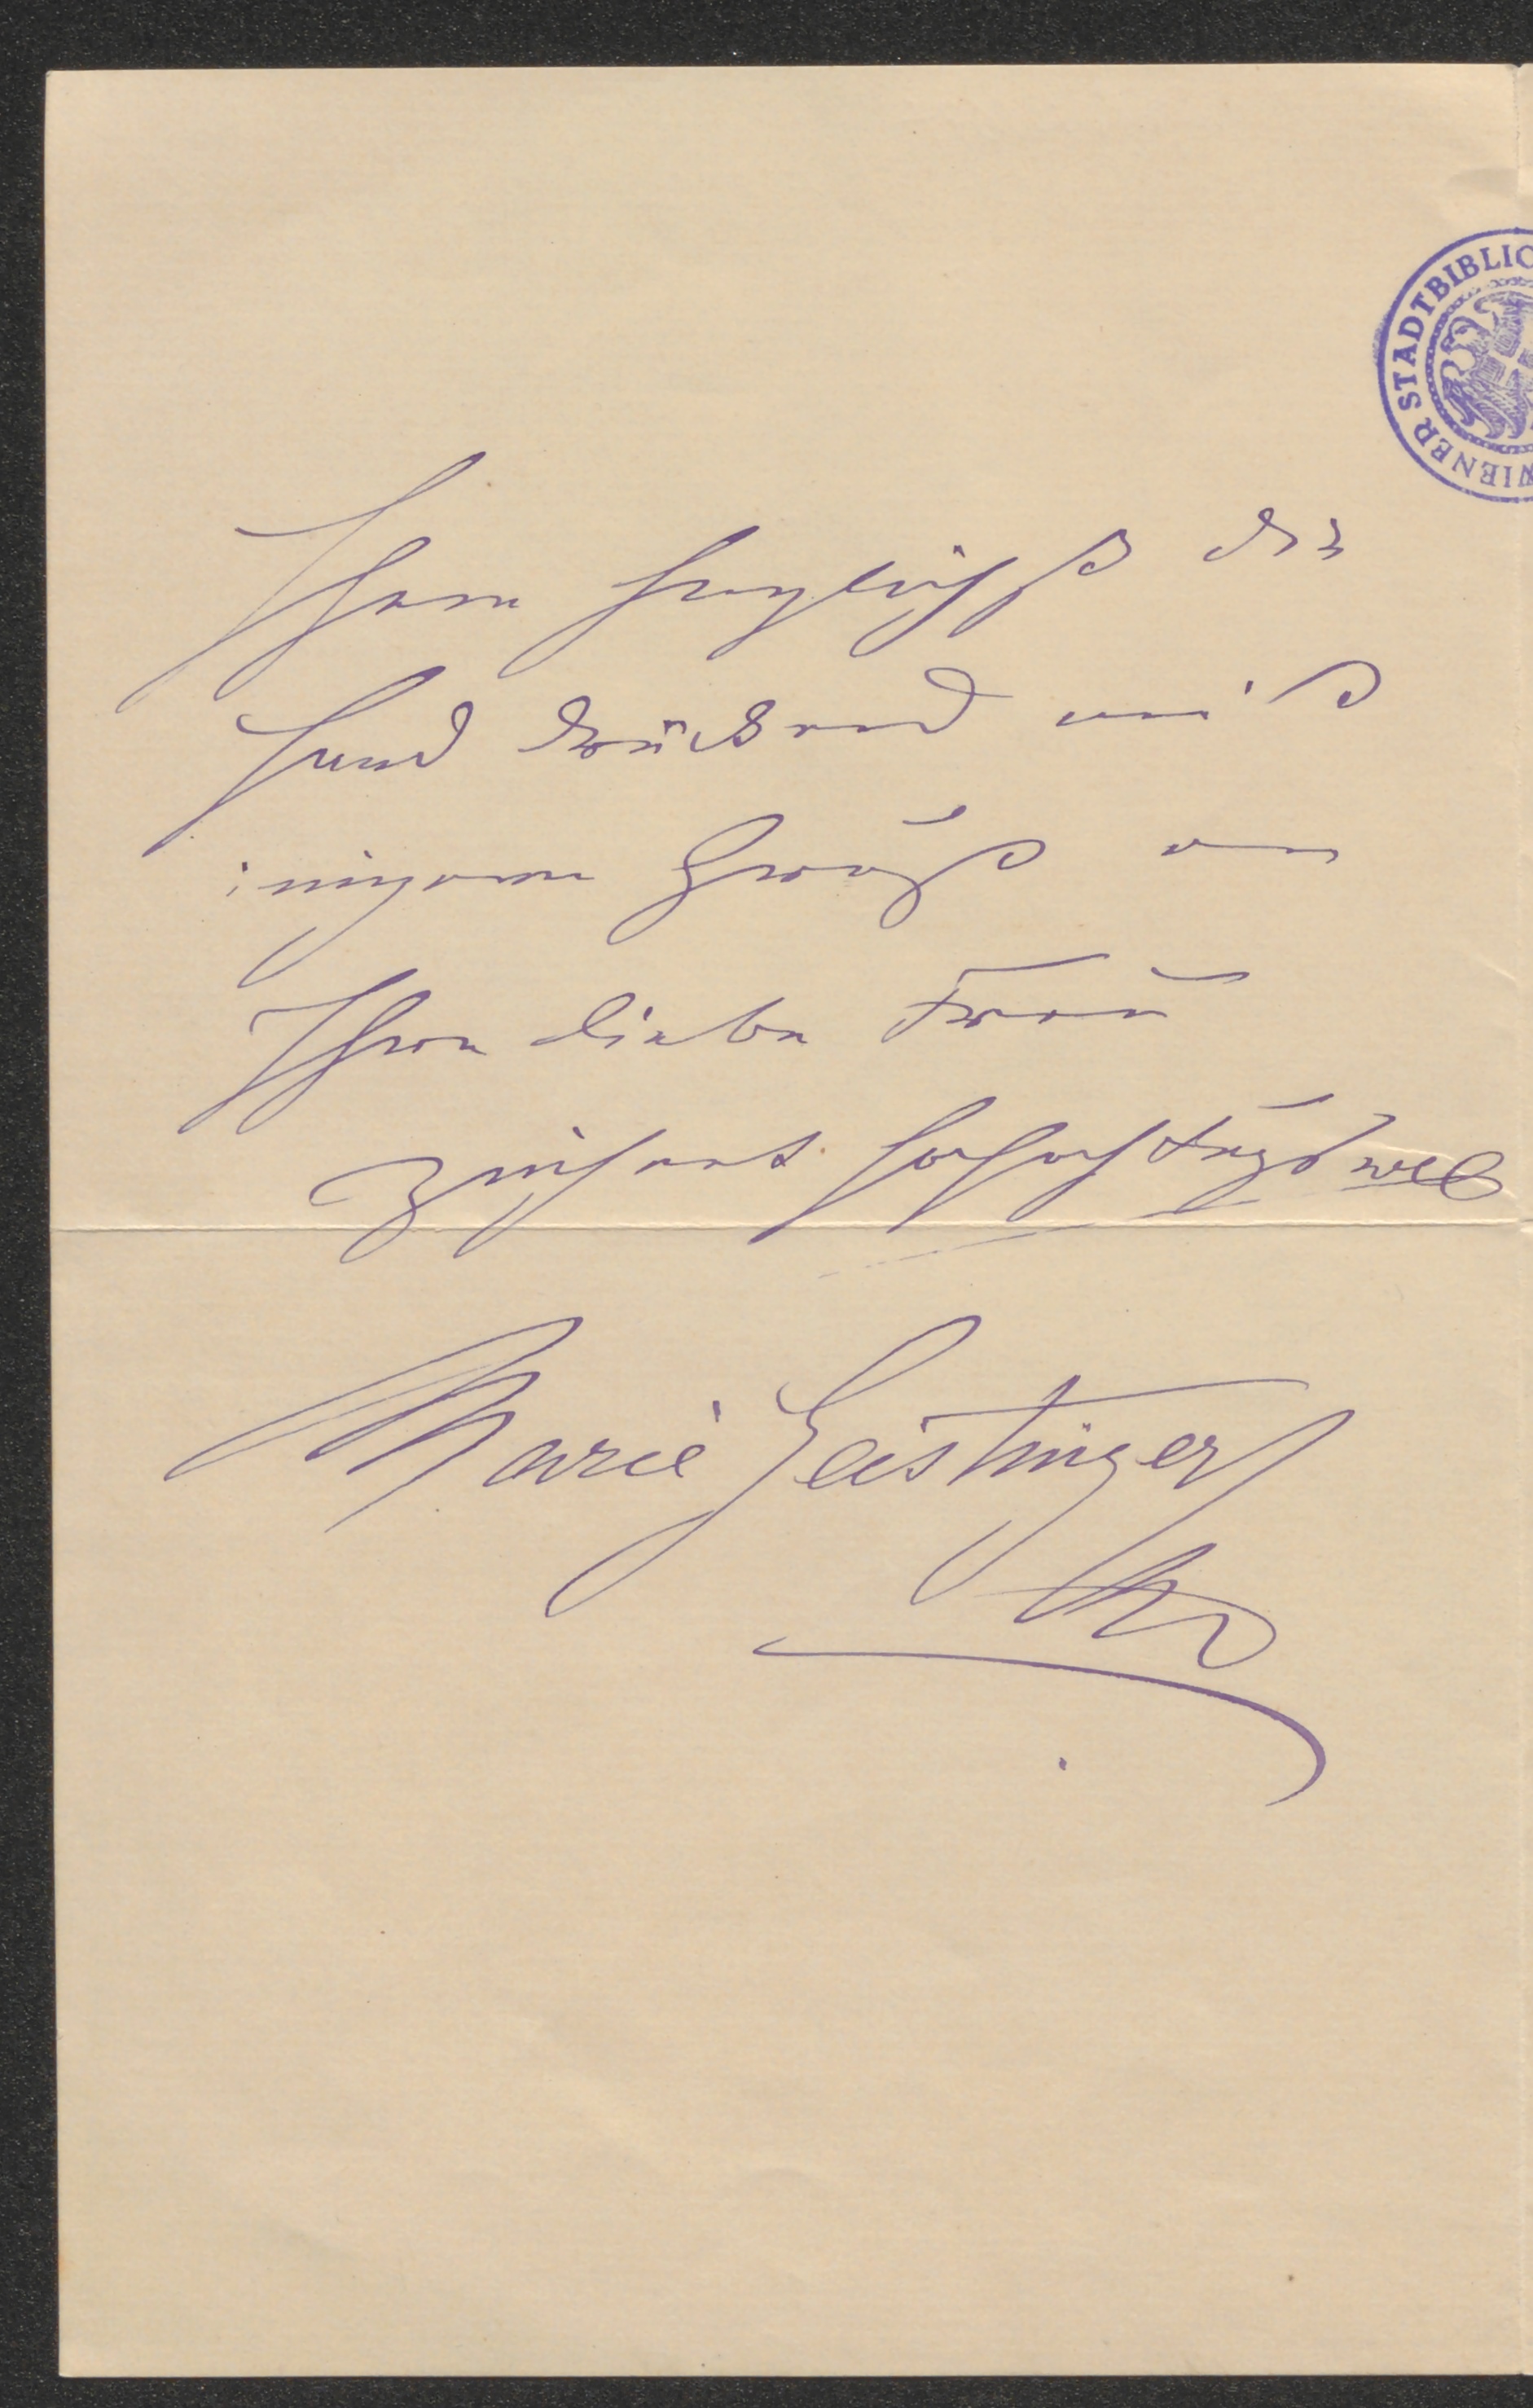 WIENER STADTBIBLIO
Ihnen herzlichst die
Hand drückend mit
innigem Gruß an
Ihre liebe Frau
zeichnet hochachtungsvoll
Marie Geistinger